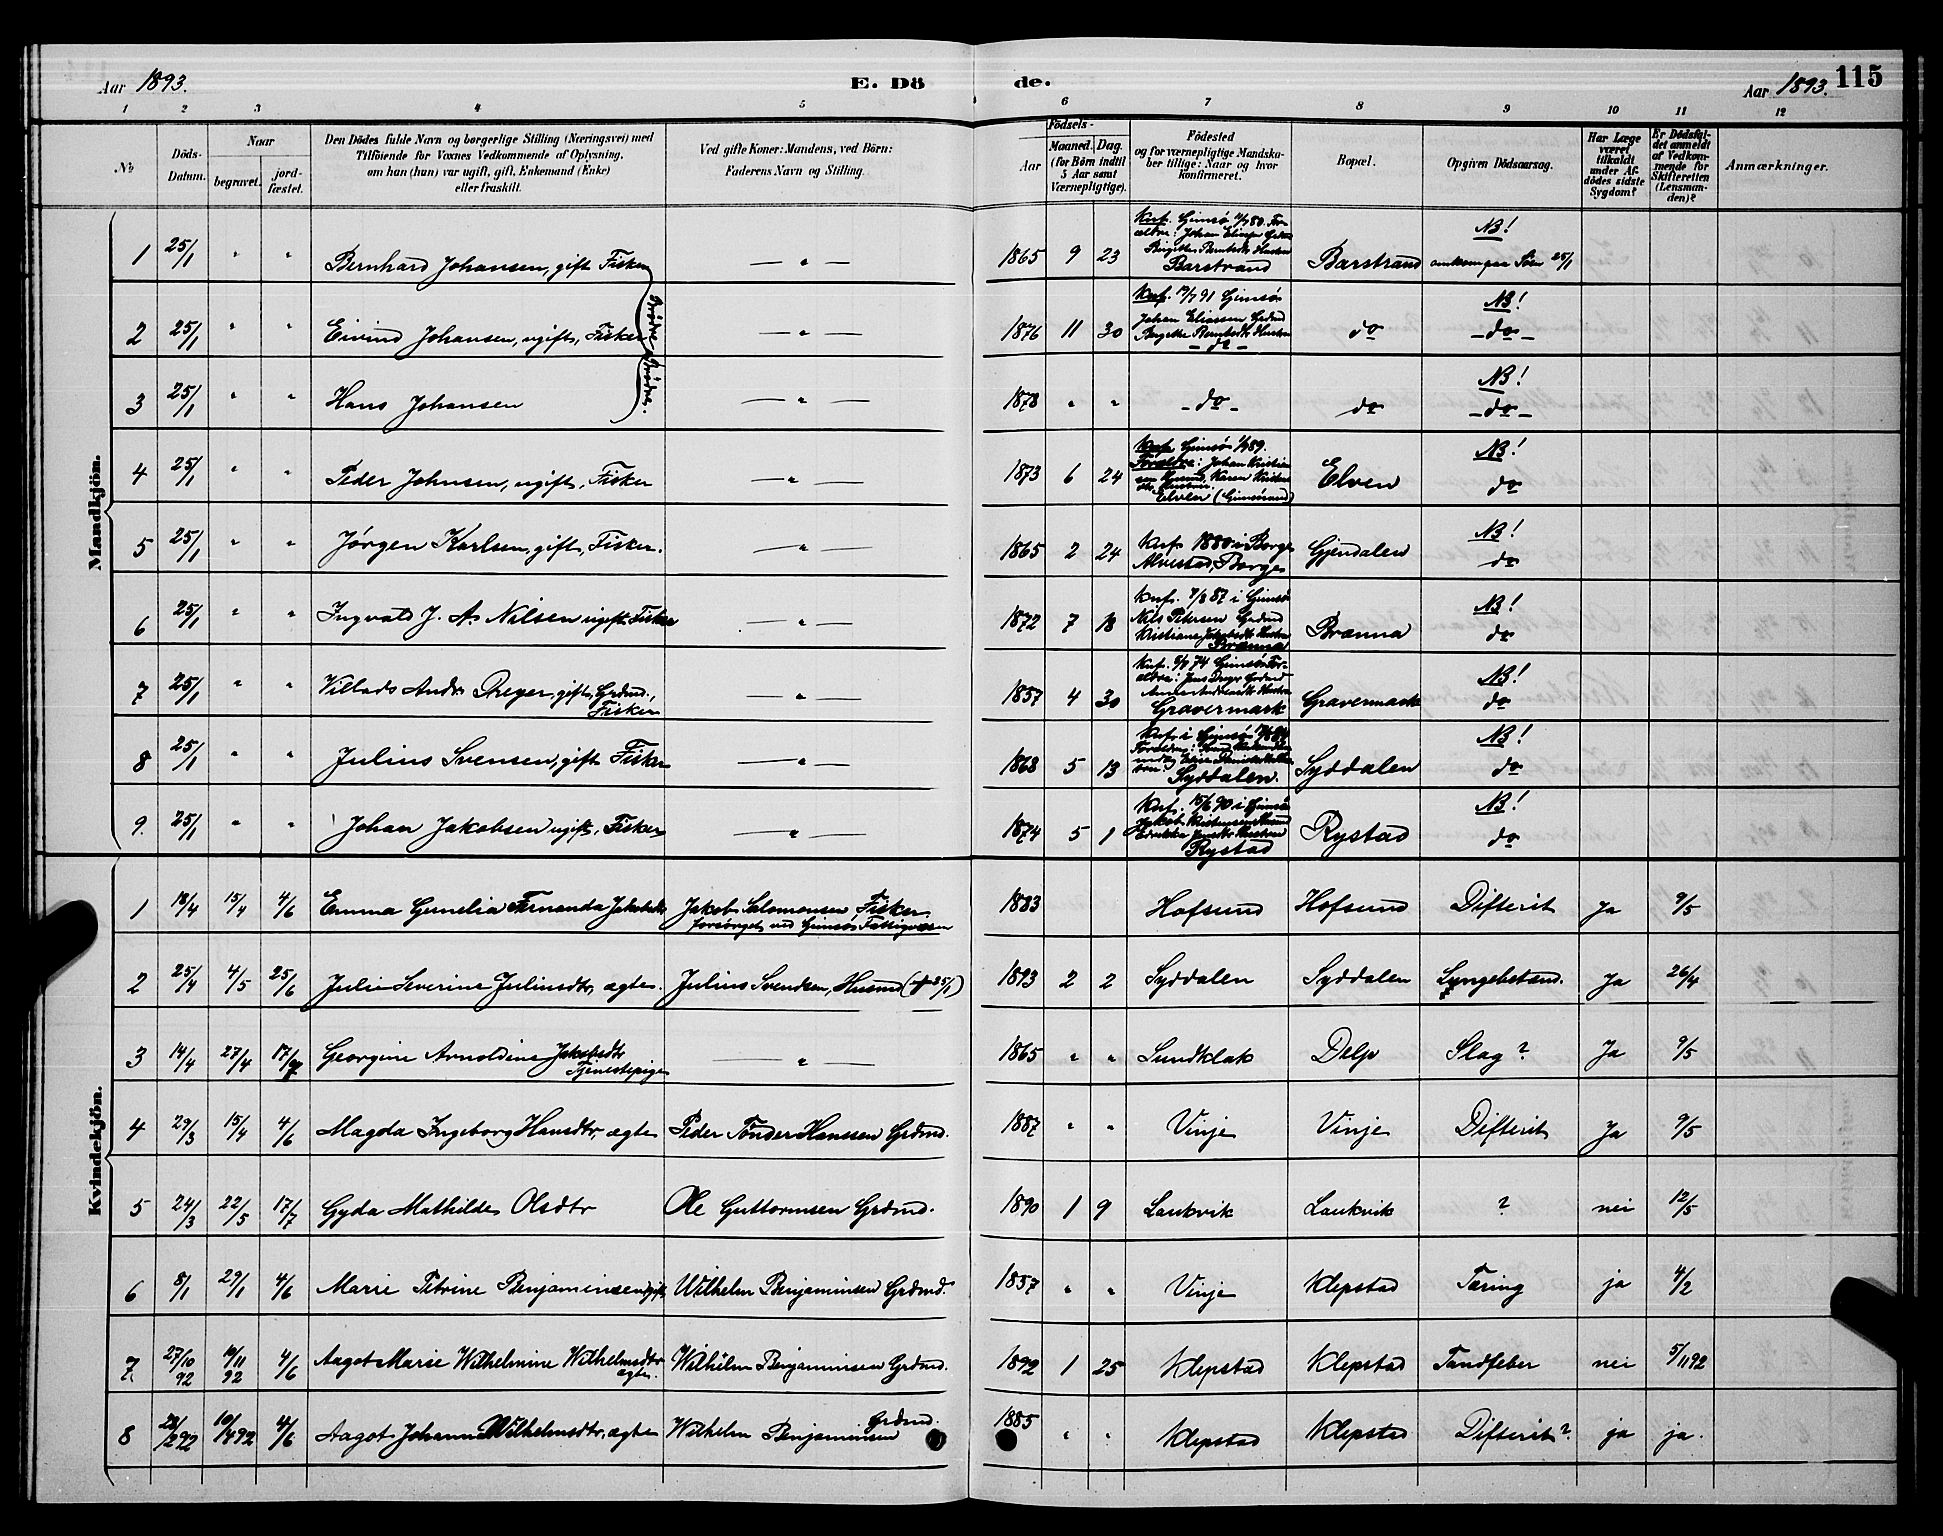 Aar 1893. E. Dö de. Aar 1893. 115
1 2 3 4 5 6 7 8 9 10 11 12
№
Döds-Datum.
Naar
begravet.
jord-fæstet.
Den Dödes fulde Navn og borgerlige Stilling (Næringsvei) med
Tilföiende for Voxnes Vedkommende af Oplysning,
om han (hun) var ugift, gift, Enkemand (Enke)
eller fraskilt.
Ved gifte Koner: Mandens, ved Börn:
Faderens Navn og Stilling.
Födsels-
Aar
Maaned. Dag.
(for Börn indtil
5 Aar samt
Værnepligtige).
Födested
og for værnepligtige Mandska-
ber tillige: Naar og hvor
konfirmeret.
Bopæl.
Opgiven Dödsaarsag.
Har Læge
været
tilkaldt
under Af-
dödes sidste
Sygdom?
Er Dödsfal-
det anmeldt
af Vedkom-
mende for
Skifteretten
(Lensman-
den)?
Anmærkninger.
Mandkjön.
1 25/1 " " Bernhard Johansen, gift Fisker — " — 1865 9 23 Barstrand Barstrand NB! omkom paa Söen 25/1
Brödre
2 25/1 " " Eivind Johansen, ugift, Fisker — " — 1876 11 30 Knf. Gimsö Johan Eliassen -do- do NB! -do-
Brödre.
3 25/1 " " Hans Johansen — " — 1878 " " -do- do NB! -do-
4 25/1 " " Peder Johnsen, ugift, Fisker — " — 1873 6 24 Knf. Gimsö Forældre: Johan Kristian Elven (Gimsösand) Elven NB! do
5 25/1 " " Jörgen Karlsen, gift, Fisker. — " — 1865 2 24 Knf. 1880 i Borge Alvestad, Borge Gjendalen NB! do
6 25/1 " " Ingvald J. A. Nilsen ugift Fisker — " — 1872 7 18 Knf. 7/8 87 i Gimsö Nils Petersen Grdmd Brænna Brænna NB! do
7 25/1 " " Villads Andr. Dreyer, gift, Grdmd., Fisker — " — 1857 4 30 Gravermark Gravermark NB! do
8 25/1 " " Julius Svensen, gift Fisker — " — 1868 5 13 Syddalen. Syddalen NB! do
9. 25/1 " " Johan Jakobsen ugift, Fisker — " — 1874 5 1 Knf. 15/6 90 i Gimsö Rystad Rystad NB! do
Kvindekjön.
1 18/4 15/4 4/6 Emma Cornelia Fernanda Jakobsdtr Jakob Salomonsen, Fisker forsörget ved Gimsös Fattigvæsen 1883 Hofsund Hofsund Difterit Ja 9/5
2 25/4 4/5 25/6 Julie Severine Juliusdtr, ægte. Julius Svendsen, Husmd († 25/1) 1893 2 2 Syddalen Syddalen Lyngebetænd. Ja 26/4
3 14/4 27/4 17/7 Georgine Arnoldine Jakobsdtr Tjenestepige — " — 1865 " " Sundklak Delp Slag? Ja 9/5
4 29/3 15/4 4/6 Magda Ingeborg Hansdtr, ægte Peder Tönder Hanssen Grdmd. 1887 " " Vinje Vinje Difterit Ja 9/5
5 24/3 22/5 17/7 Gyda Mathilde Olsdtr Ole Guttormsen Grdmd. 1890 1 9 Laukvik Laukvik ? nei 12/5
6 8/1 29/1 4/6 Marie Petrine Benjaminsen gift Wilhelm Benjaminsen Grdmd. 1857 " " Vinje Klepstad Tæring ja 4/2
7. 27/10 92 10/11 92 4/6 Aagot Marie Wilhelmine Wilhelmsdtr ægte. Wilhelm Benjaminsen Grdmd. 1892 1 25 Klepstad Klepstad Tandfeber nei 5/11 92
8 28/2 92 10/4 92 4/6 Aagot Johanna Wilhelmsdtr, ægte Wilhelm Benjaminsen Grdmd. 1885 " " Klepstad Klepstad Difterit? ja ja.